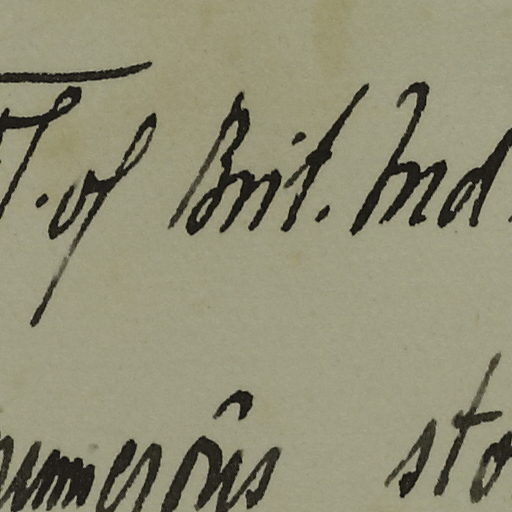 of Brit. Ind.
numerous sto